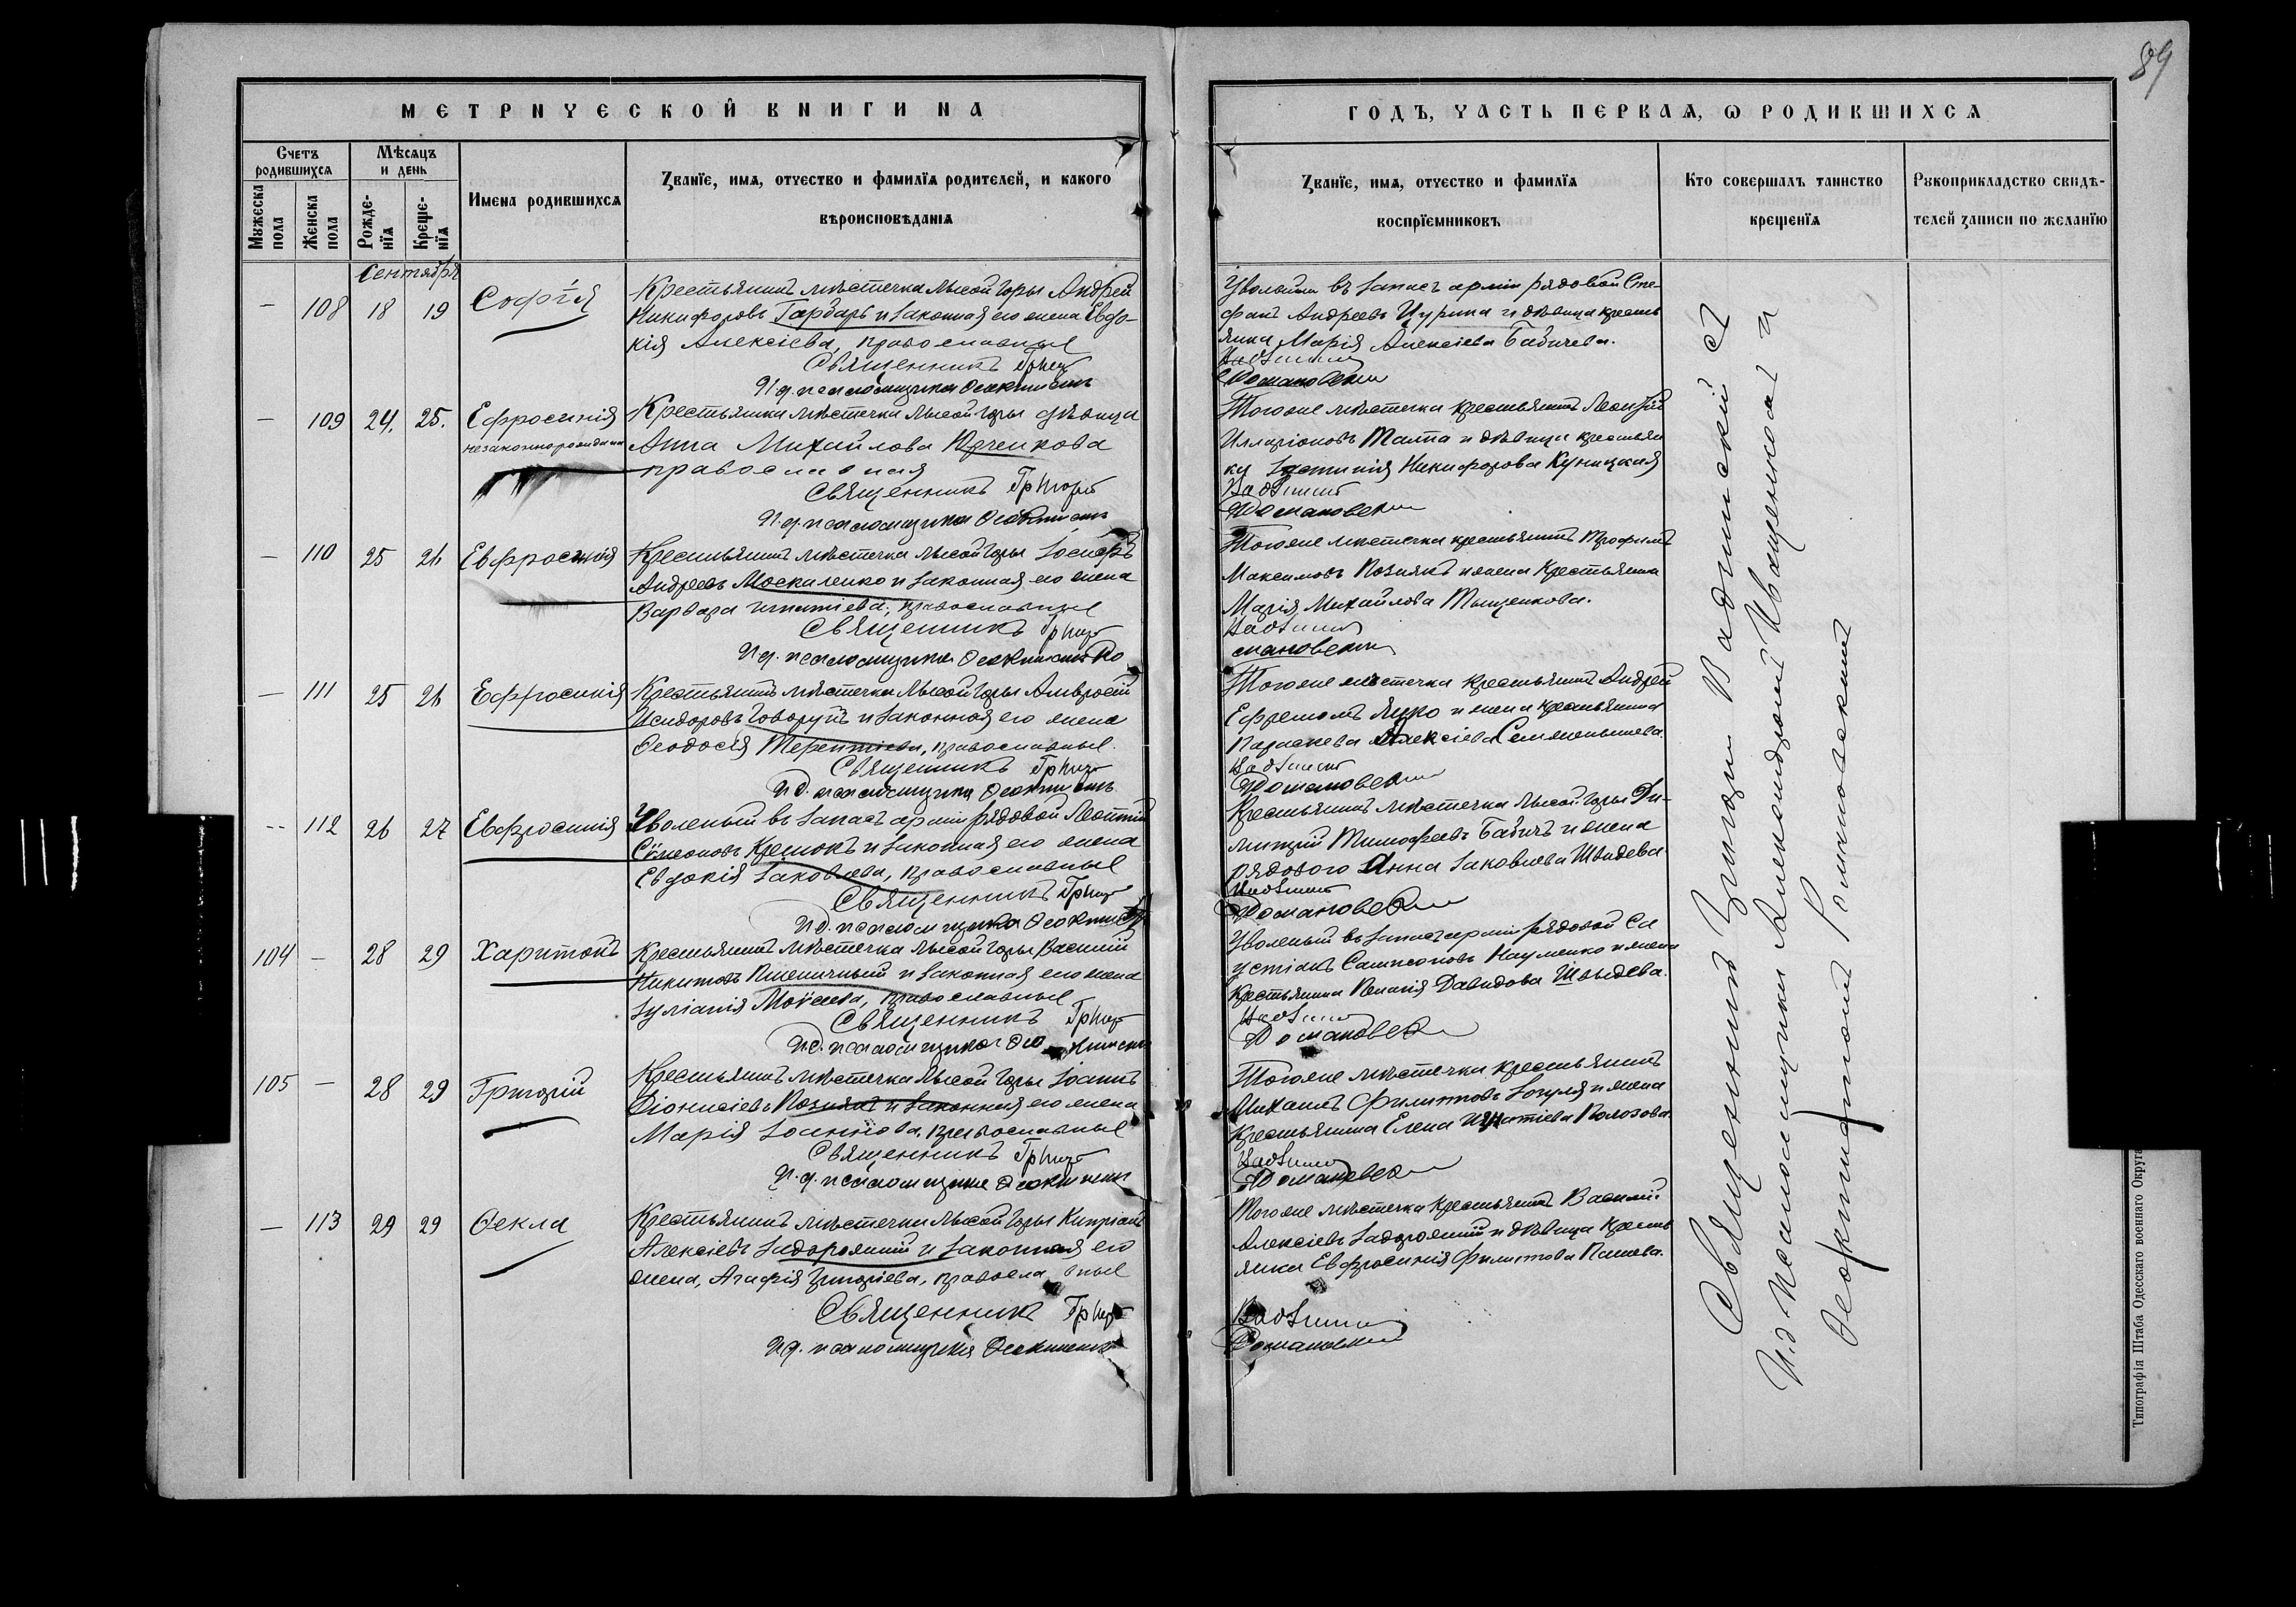 89
МЕТРИЧЕСКОЙ КНИГИ НА
ГОДЪ, ЧАСТЬ ПЕРВАѦ, Ѡ РОДИВШИХСѦ
Счетъ родившихсѧ
Мѣсѧцъ и день
Имена родившихсѧ
Званїе, имѧ, отчество и фамилїѧ родителей, и какого
вѣроисповѣданїѧ
Мужеска пола
Женска пола
Рожде-нїѧ
Креще-нїѧ
Званїе, имѧ, отчество и фамилїѧ
воспрїемниковъ
Кто совершалъ таинство
крещенїѧ
Рукоприкладство свидѣ-
телей записи по желанїю
Сентябрь
— 108 18 19 Софія
Крестьянинъ мѣстечка Лысой Горы Андрей
Никифоровъ Гардаръ и законная его жена Евдо-
кія Алексіева, православные
Священникъ Григ
И.д. псаломщика Феоктистъ
Уволенный въ запасъ арміи рядовой Сте-
фанъ Андреевъ Цурика и дѣвица кресть
янка Марія Алексіева Бабичева.
Вадзинскій
Романовскій
— 109 24. 25. Ефросинія
незаконнорожденная
Крестьянка мѣстечка Лысой Горы дѣвица
Анна Михайлова Юрченкова
православная
Священникъ Григорій
И.д. псаломщика Феоктистъ
Тогоже мѣстечка крестьянинъ Леонтій
Илларіоновъ Талпа и дѣвица крестьян
ка Іустинія Никифорова Куницкая
Вадзинскій
Романовскій
— 110 25 26 Евфросинія
Крестьянинъ мѣстечка Лысой Горы Іосифъ
Андреевъ Москаленко и законная его жена
Варвара Игнатіева, православные
Священникъ Григ
И.д. псаломщика Феоктистъ Ро
Тогоже мѣстечка крестьянинъ Трофимъ
Максимовъ Познякъ и жена крестьянина
Марія Михайлова Тыщенкова.
Вадзинскій
мановскій
— 111 25 26 Ефросинія
Крестьянинъ мѣстечка Лысой Горы Амвросій
Исидоровъ Говорунъ и законная его жена
Феодосія Терентіева, православные.
Священникъ Григ
И.д. псаломщика Феоктистъ
Тогоже мѣстечка крестьянинъ Андрей
Ефремовъ Яцко и жена крестьянина
Параскева Алексіева Семенышева
Вадзинскій
Романовскій
-- 112 26 27 Евфросинія
Уволеный въ запасъ арміи рядовой Леонтій
Сѵмеоновъ Кремокъ и законная его жена
Евдокія Іаковлева, православные
Священникъ Григ
И.д. псаломщика Феоктистъ
Крестьянинъ мѣстечка Лысой Горы Ди-
митрій Тимофеевъ Бабичъ и жена
рядового Анна Іаковлева Швидева
Вадзинскій
Романовскій
104 — 28 29 Харитонъ
Крестьянинъ мѣстечка Лысой Горы Василій
Никитовъ Пшеничный и законная его жена
Іуліанія Моѵсеева, православные
Священникъ Григ
И.д. псаломщика Феоктистъ
Уволеный въ запасъ арміи рядовой Се
устіанъ Сампсоновъ Науменко и жена
крестьянина Пелагія Давидова Швыдева.
Вадзинскій
Романовскій
105 — 28 29 Григорій
Крестьянинъ мѣстечка Лысой Горы Іоаннъ
Діонисіевъ Познякъ и законная его жена
Марія Іоаннова, православные
Священникъ Григ
И.д. псаломщика Феоктистъ
Тогоже мѣстечка крестьянинъ
Михаилъ Филипповъ Зозуля и жена
крестьянина Елена Игнатіева Полозова.
Вадзинскій
Романовскій
— 113 29 29 Фекла
Крестьянинъ мѣстечка Лысой Горы Кипріанъ
Алексіевъ Задорожний и законная его
жена, Агафія Григоріева, православные
Священникъ Григ
И.д. псаломщика Феоктистъ
Тогоже мѣстечка крестьянинъ Василій
Алексіевъ Задорожний и дѣвица кресть
янка Евфросинія Филиппова Пашева.
Вадзинскій
Романовскій
Священникъ Григорій Вадзинскій съ
И.д. псаломщика Александромъ Иващенкомъ и
Феоктистомъ Романовскимъ
Типографія Штаба Одесскаго военнаго Округа